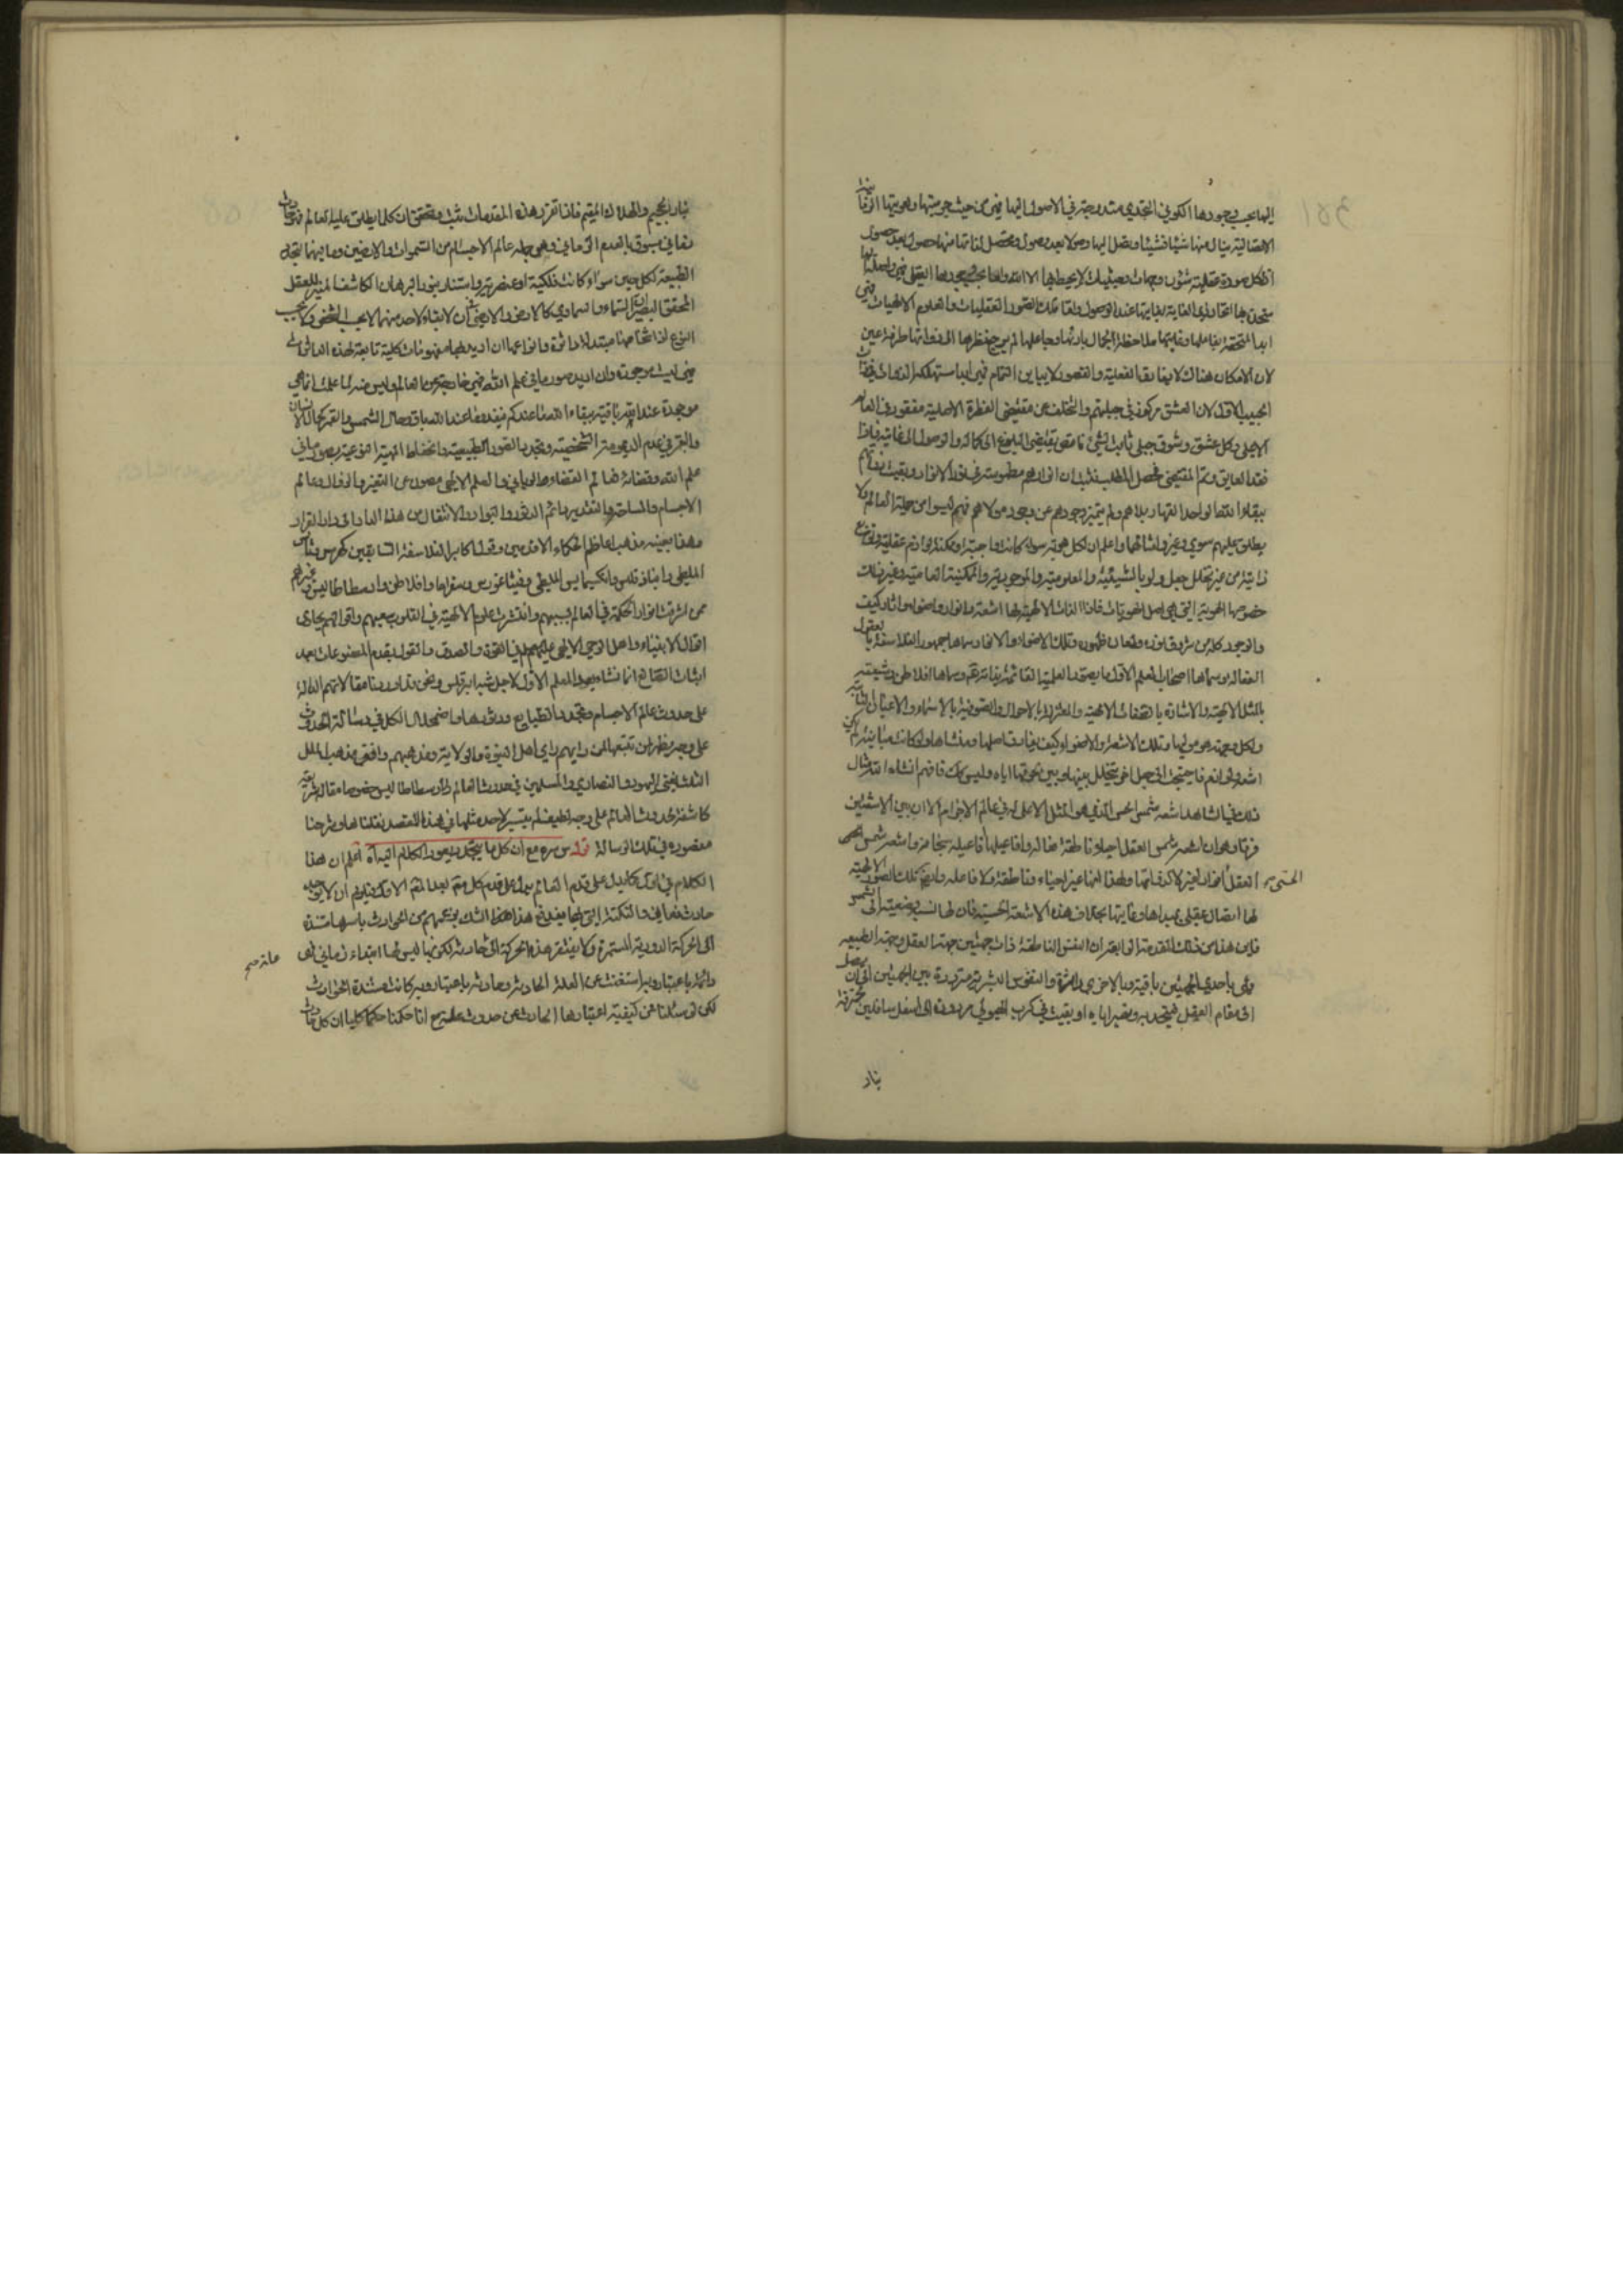 اليها بحسب وجودها الكوني التجددي متدرجة في الاصول اليها فهي من حيث جزئيتها وهويتها
الاتصالية ينال منها شيئا فشيئا وتصل اليها وصولا بعد وصول وتحصل لذاتها منها حصول بعد حصول
اذ لكل صورة عقلية شؤن وجهات وحيثيات لا يحيط بها الا الله واما بحسب وجودها العقلي فهي
متحدة بها اتحاد ذي الغاية بغايتها عند الوصول ولقا تلك الصور العقليات والعلوم الالهيات فهي
ابدا ملاحظة لجمال بارئها وجاعلها لم يرجع نظرها الى ذواتها طرفة عين
لان الامكان هناك لا يفارق الفعلية والقصور لا يباين التمام فهي ابدا مستهلكة الذوات في
الحبيب الاول لان العشق مركوز في جبلتهم والتخلف عن مقتضى الفطرة الاصلية مفقود في العالم
الاعلى وكل عشق وشوق جبلي ثابت لشئ ناقص يقتضي البلوغ الى كماله والوصول الى غايته فاذا
فقد العايق وتم المقتضي فحصل المطلب فثبت ان انوارهم مطموسة في نور الانوار وبقيت ذواتهم
ببقاء الله الواحد القهار بلاهم ولم يتميز وجودهم عن وجود من لا هو فهم ليسوا من جملة العالم ولا
يطلق عليهم سوى وغير واعلم ان لكل هوية سواء كانت واجبة او ممكنة لوازم عقلية
ذاتية من غير تخلل جعل ولو بالشيئية والمعلومية والموجودية والممكنية العامية وغير ذلك
خصوصا الهوية التي هي اصل الهويات فاذا الذات الالهية لها اشعة وانوار واضواء واثار كيف
والوجود كله من شروق نوره ولمعان ظهوره وتلك الاضواء والانوار سماها جمهور الفلاسفة بالعقول
الفعالة وسماها اصحاب المعلم الاول بالصور العلمية القائمة بذاته تعالى وسماها افلاطن وشيعته
بالمثل الالهية والاشاعرة بالصفات الالهية والمعتزلة بالاحوال والصوفية بالاسماء والاعيان الثابتة
ولكل وجهة هو موليها وتلك الاشعة والاضواء كيف يفارق اصلها ومنشاها ولو كانت مباينة لم يكن
اشعة ولوانع فاحتيجت الى جعل اخر يتخلل بينها وبين نحوها اياه وليس كذلك فافهم انشاء الله مثال
ذلك في الشاهد اشعة شمس الحس الذي هو المثل الاعلى له في عالم الاجرام الا ان بين الاشعتين
فرقا وهو ان اشعة شمس العقل احياء ناطقة فعالة وافاعيلها فاعيله بخلافها واشعة شمس الحس
الحسي صح العقل انوار لغيرها لا لذواتها ولهذا انها غير احياء وناطقة ولا فاعلة وايضا تلك الصور الالهية
لها اتصال عقلي بمبداها وغايتها بخلاف هذه الاشعة الحسية فان لها نسبة وضعية الى الشمس
فاين هذا من ذلك المقدمة الرابعة ان النفس الناطقة ذات جهتين جهة العقل وجهة الطبيعة
وهي باحدى الجهتين باقية وبالاخرى داثرة والنفوس البشرية مترددة بين الجهتين الى ان تصل
الى مقام العقل فيتحد به وتصير اياه او بقيت في كرب الهيولى مردودة الى اسفل سافلين محترقة
بنار
بنار الجحيم والعذاب المقيم فاذا تقرر هذه المقدمات ثبت وتحقق ان كلما يطلق عليه العالم فهو حادث
زماني مسبوق بالعدم الزماني وهي جملة عالم الاجسام من السموات والارضين وما بينهما لتجدد
الطبيعة لكل جسم سواء كانت فلكية او عنصرية واستنار بنور البرهان الكاشف المنير للعقل
المحقق البصير ان السماء والسماوي كالارض والارضي في ان لا بقاء لاحد منهما لا بحسب الشخص ولا بحسب
النوع اذ اشخاصها متبدلة داثرة وانواعها ان اريد بها مفهومات كلية تابعة لهذه الداثرات
فهي ليست موجودة وان اريد صور ما في علم الله فهي خارجة عن العالم وليس لما علمت انها هي
موجودة عند الله باقية ببقاء الله ما عندكم ينفد وما عند الله باق وحال الشمس والقمر كحال الانسان
والبقر في عدم الديمومة الشخصية وتجدد الصور الطبيعية وانحفاظ المهية النوعية بصور ما في
علم الله وقضائه فعالم القضاء الرباني والعلم الالهي مصون عن التغير والزوال وعالم
الاجسام والمساحة والتقدير دائم الدثور والبوار والانتقال من هذه الدار الى دار القرار
وهذا بعينه مذهب اعاظم الحكماء الاقدمين وقول اكابر الفلاسفة السابقين كهرمس وثاليس
الملطي وانباذقلس وانكسيمايس الملطي وفيثاغورس وسقراط وافلاطن وارسطاطاليس وغيرهم
ممن اشرقت انوار الحكمة في العالم بسببهم وانتشرت علوم الالهية في القلوب بسعيهم واقوالهم يحاذي
اقوال الانبياء واهل الوحي الالهي عليهم السلام في القوة والصدق والقول بقدم المصنوعات بعد
اثبات الصانع انما نشاء بعد المعلم الاول لاجل شبه ابرقلس ونحن قد اوردنا مقالاتهم الدالة
على حدوث عالم الاجسام وتجدد الطبايع ودثورها واضمحلال الكل في رسالة الحدوث
على وجه يظهر لمن تتبعها ان رايهم راي اهل النبوة والولاية ومذهبهم وافق مذهب الملل
الثلث اعني اليهود والنصارى والمسلمين في حدوث العالم وارسطاطاليس خصوصا مقالة شريفة
كاشفة لحدوث العالم على وجه لطيف لم يتيسر لاحد مثلها في هذا المقصد نقلناها وشرحنا
مقصوده في تلك الرسالة قوله س سره مع ان كل ما يتجدد يعود الكلام اليه اه اعلم ان هذا
الكلام في انه كما يدل على قدم العالم يدل على قدم كل واحد من العالم الاول فيلزم ان لا يوجد
حادث زماني والنكتة التي بها يندفع هذا هذا الشك بزعمهم من الحوادث باسرها مستندة
الى الحركة الدورية المستمرة ولا يفتقر هذه الحركة الى علة حادثة لكونها ليس لها ابتداء زماني فهي
علة صح
دائمة باعتبار وبه استغنت عن العلة الحادثة وحادثة باعتبار وبه كانت مستندة الحوادث
لكن لو سئلنا عن كيفية اعتبارها الحادث عن حدوث علة مع انا حكمنا حكما كليا ان كل حادث